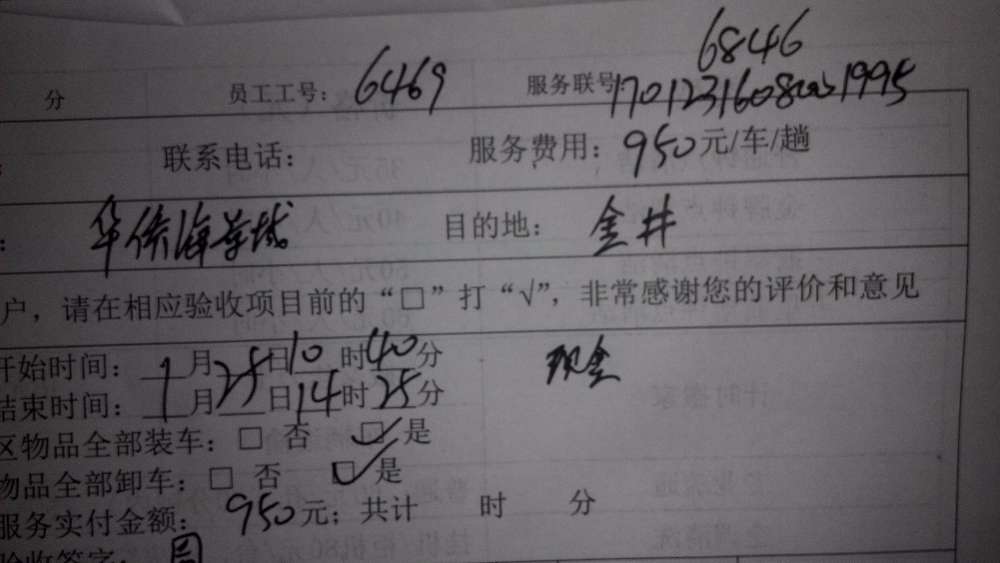 6846
分 员工工号: 6469 服务联号
联系电话: 服务费用: 950元/车/趟
: 华侨海景城 目的地: 金井
户，请在相应验收项目前的“□”打“√”，非常感谢您的评价和意见
开始时间: 1月25日10时40分 现金
结束时间: 1月25日14时25分
区物品全部装车: □ 否 ☑ 是
物品全部卸车: □ 否 ☑ 是
服务实付金额: 950元; 共计 时 分
验收签字: